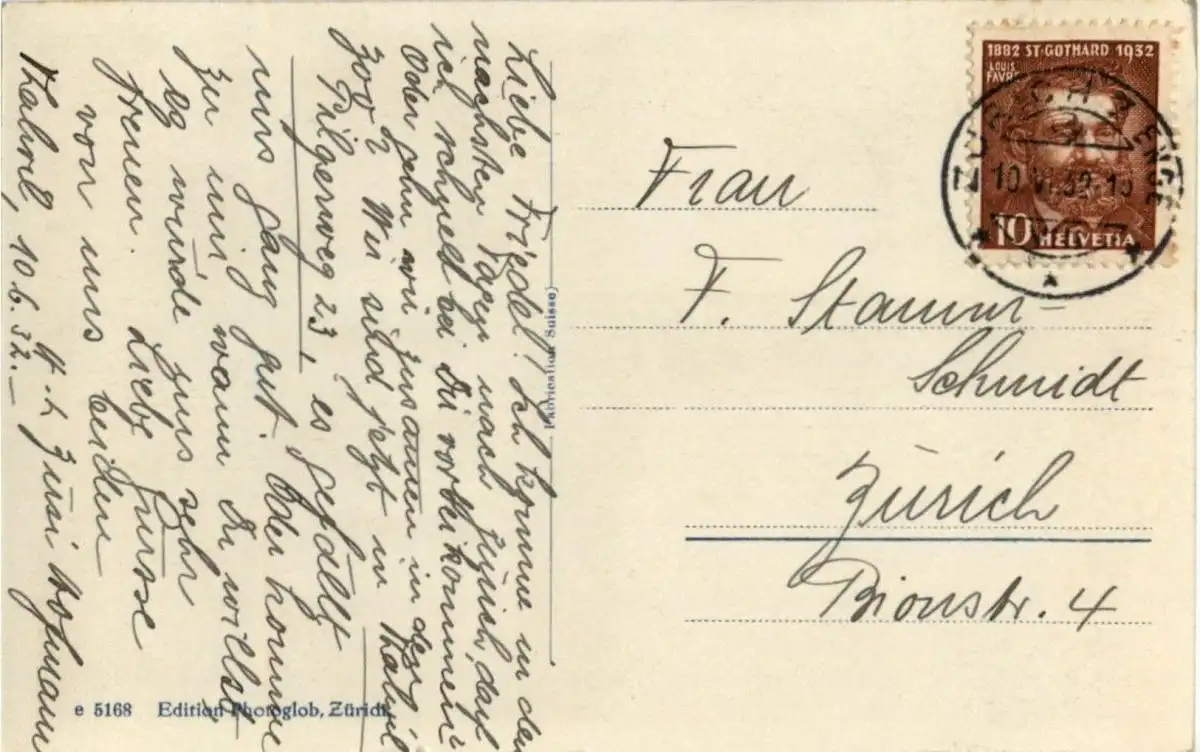 Liebe Friedel! Ich komme in den
nächsten Tagen nach Zürich, darf
ich schnell bei Dir vorbeikommen?
Oder gehn wir zusammen in den
Zoo? Wir sind jetzt in Thalwil
Pilgerweg 23, es gefällt
uns ganz gut. Oder komme
zu mir wann Du willst,
es würde uns sehr
freuen. Liebe Grüsse
von uns beiden
H. Züsi Hofmann
Thalwil, 10.6.32.
(Fabrication Suisse)
e 5168 Edition Photoglob, Zürich
Frau
F. Stamm-
Schmidt
Zürich
Bionstr. 4
1882 ST·GOTHARD 1932
LOUIS
FAVRE
10 HELVETIA
ZÜRICH 2 ENGE
10.VI.32